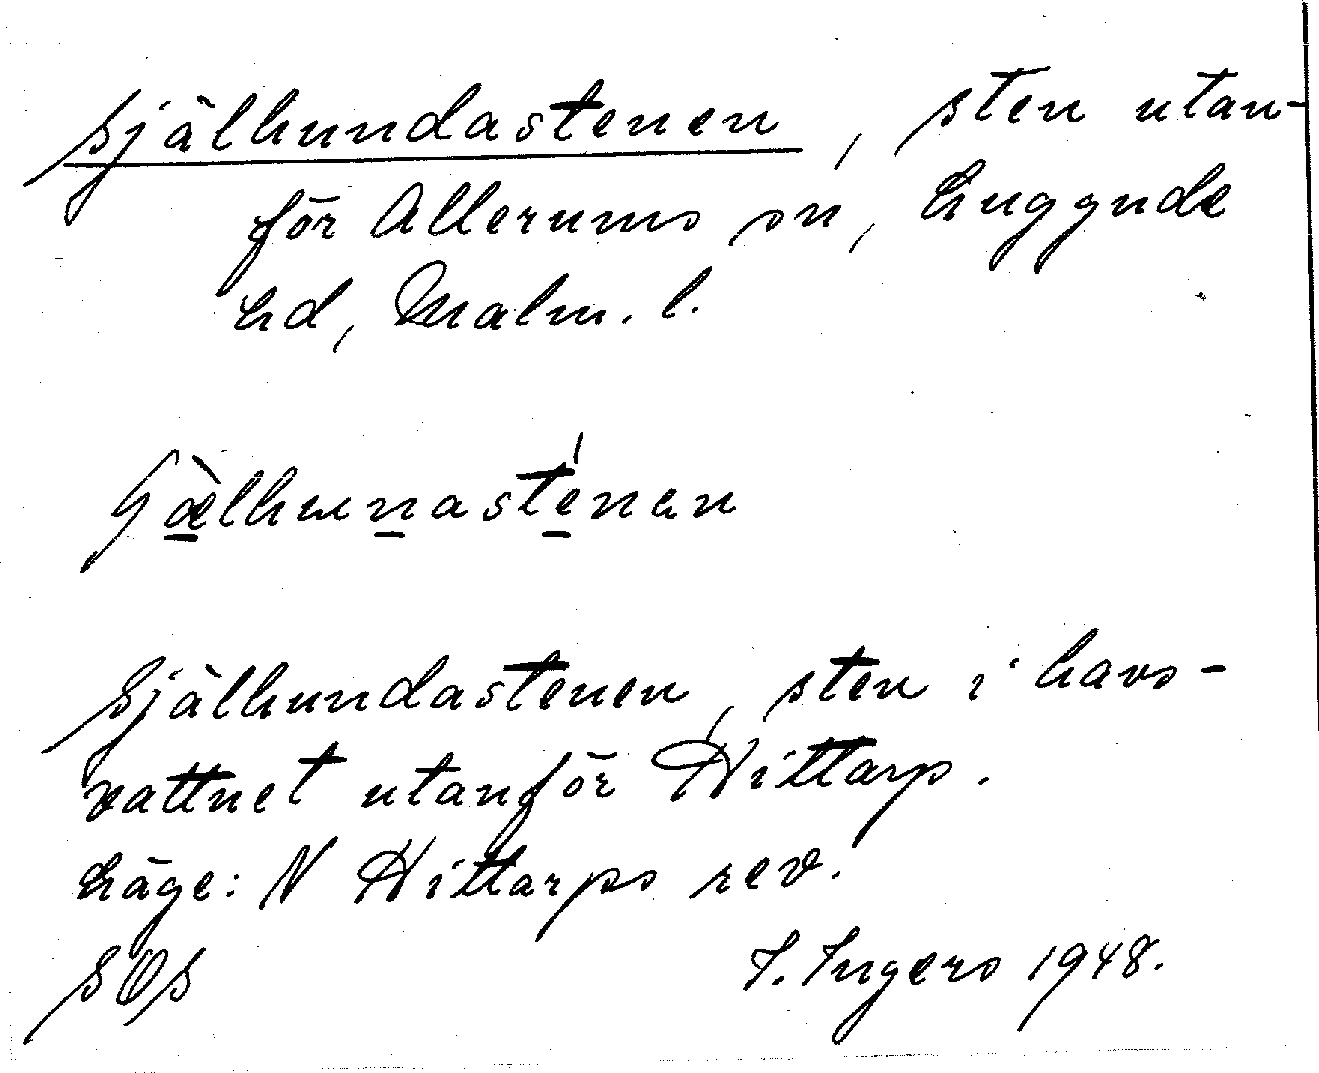 Själhundastenen, sten utan-
för Allerums sn, Luggude
hd, Malm. l.
sälhunasténen
Själhundastenen, sten i havs-
vattnet utanför Hittarp.
Läge: N Hittarps rev.
SOS I. Ingers 1948.